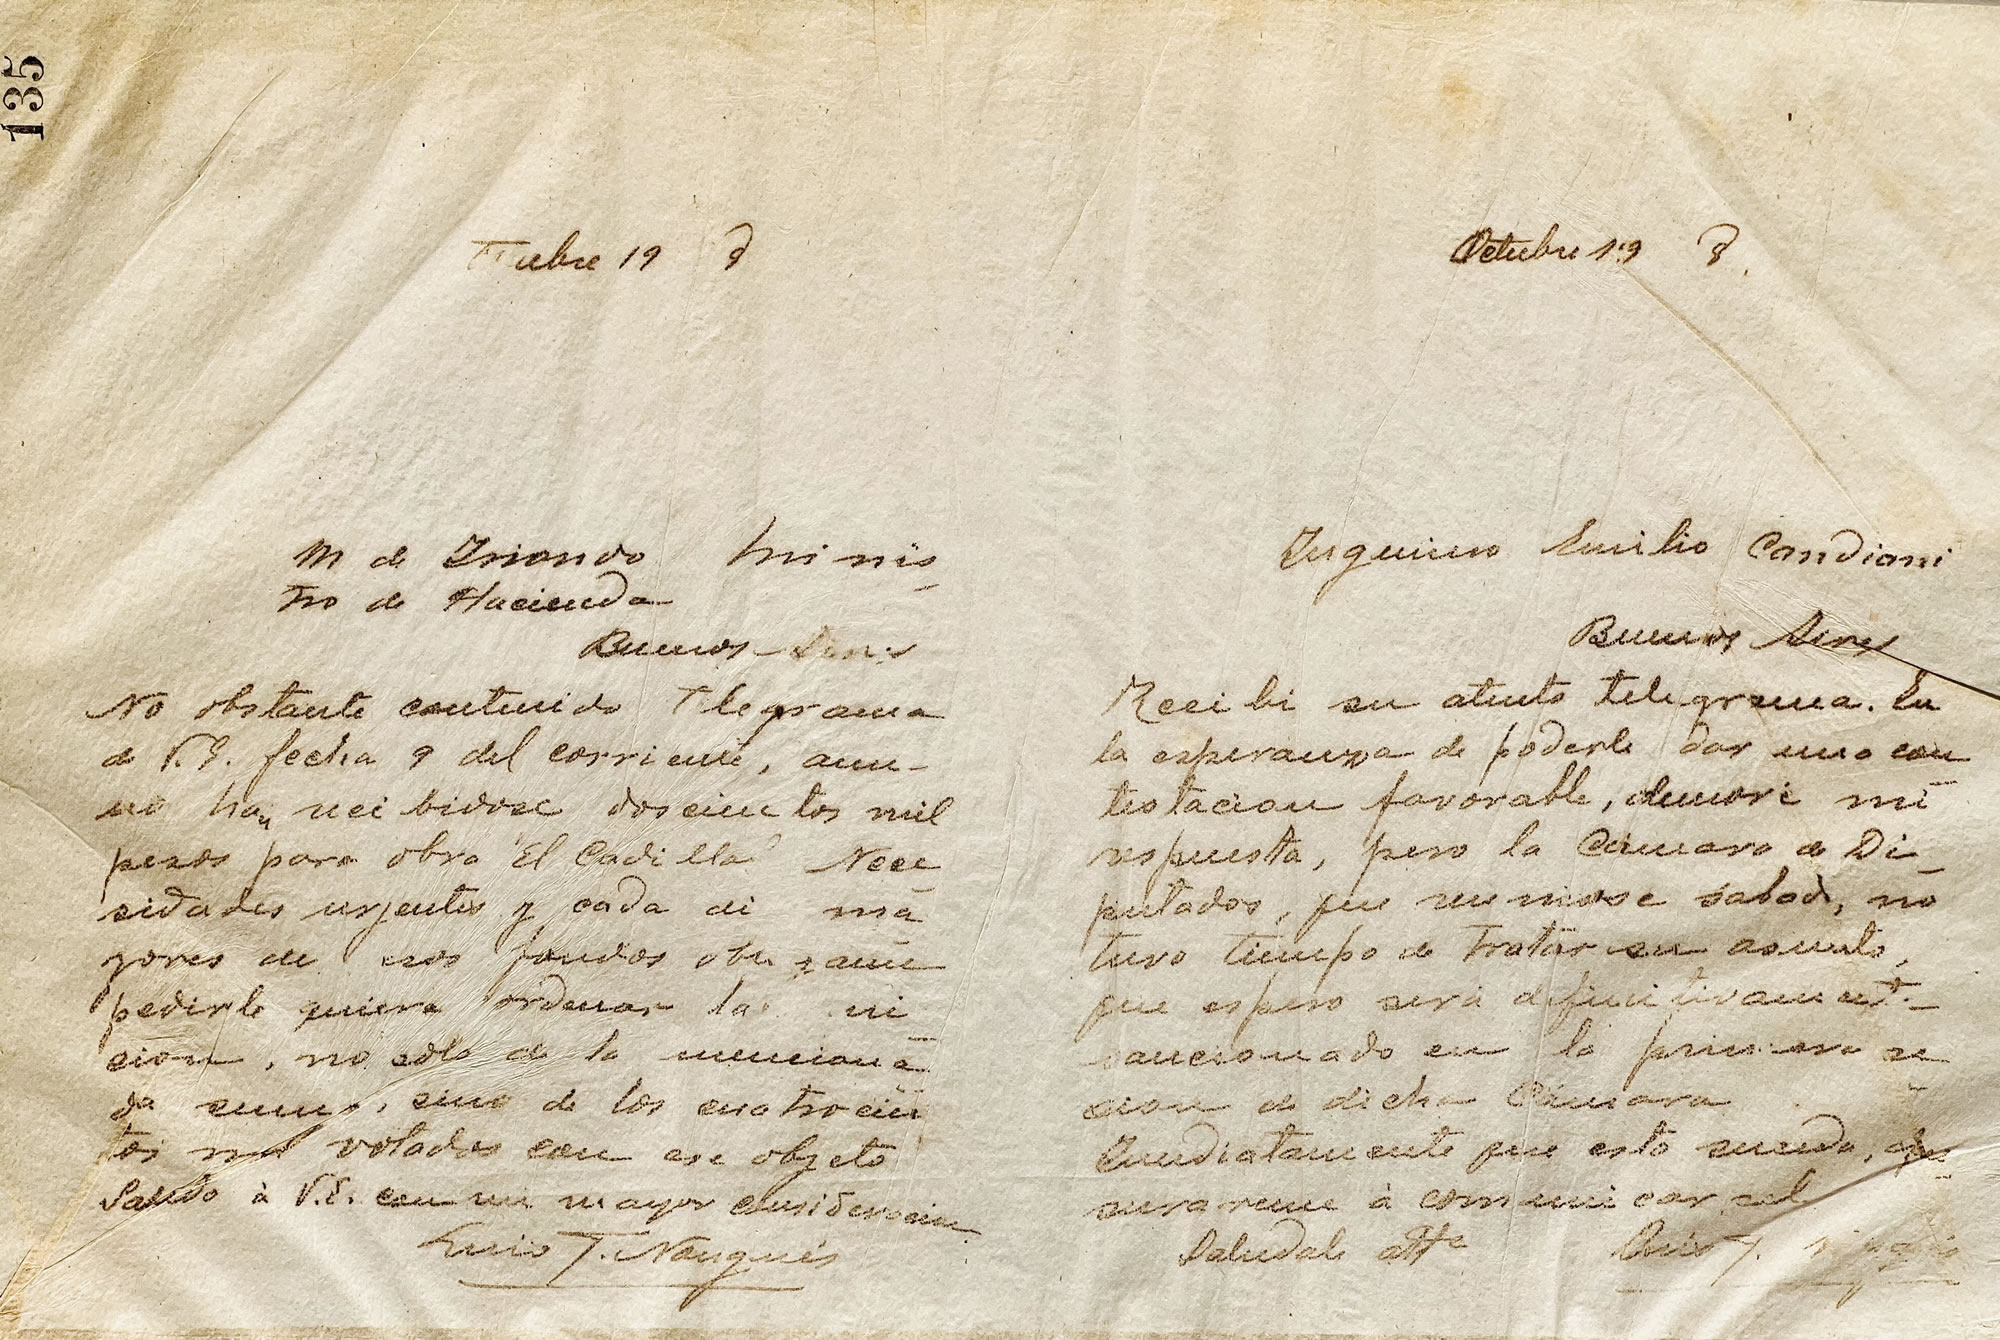 135
Octubre 19 8
M de Iriondo Minis
tro de Hacienda
Buenos Aires
No obstante contenido Telegrama
de V.E. fecha 9 del corriente, aun
no han recibidose doscientos mil
pesos para obra "El Cadillal" Nece
sidades urjentes y cada di ma
yores de esos fondos
pedirle quiera ordenar la
cion, no solo de la menciona
da suma, sino de los cuatrocien
tos mil votados con ese objeto
Saludo à V.E. con mi mayor consideracion
Luis F. Nougués
Octubre 19 8
Ingeniero Emilio Candiani
Buenos Aires
Recibi su atento telegrama. En
la esperanza de poderle dar una con
testacion favorable, demoré mi
respuesta, pero la Cámara de Di
putados, que reuniose sabado, no
tuvo tiempo de tratar su asunto,
que espero será definitivamente
sancionado en la primera se
cion de dicha Cámara
Imediatamente que esto suceda, apre
surareme à comunicarsel
Saludale atte Luis F. Nougués